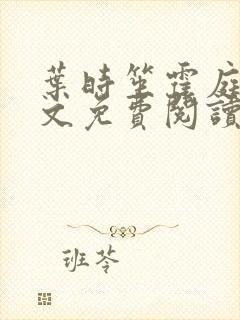 葉時笙霆庭
文免費閱讀
班苓